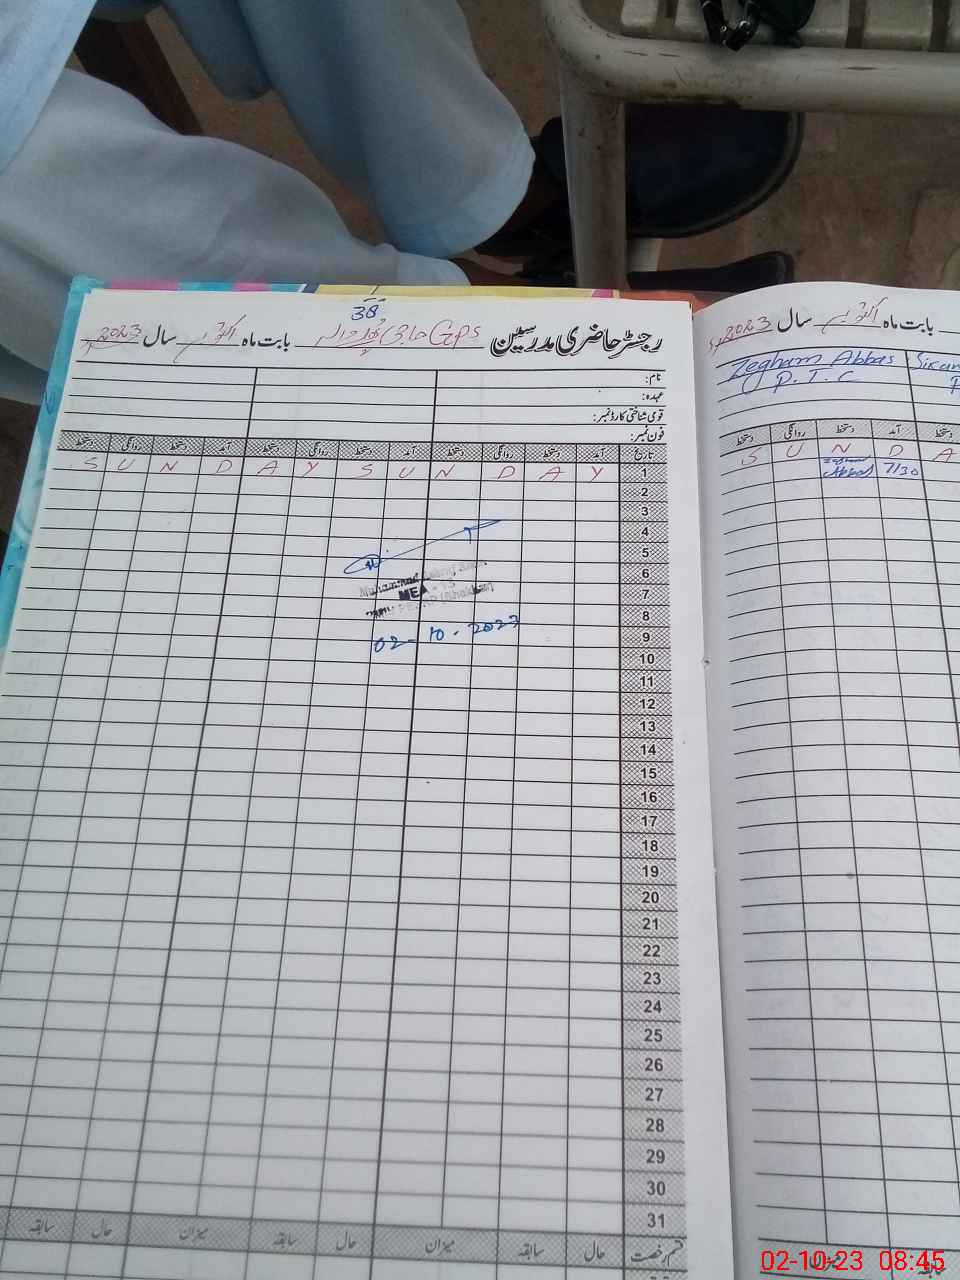 38
رجسٹر حاضری مدرسین GPS حاجی بابت ماہ اکتوبر سال 2023
نام:
عہدہ:
قومی شناختی کارڈ نمبر:
فون نمبر:
تاریخ آمد دستخط روانگی دستخط آمد دستخط روانگی دستخط آمد دستخط روانگی دستخط
1 S U N D A Y S U N D A Y
2
3
4
5
6
7
8
9
10
11
12
13
14
15
16
17
18
19
20
21
22
23
24
25
26
27
28
29
30
31
Muhammad
MEA - 13
(Bhakkar)
02-10-2023
قسم رخصت حال سابقہ میزان حال سابقہ میزان حال سابقہ
بابت ماہ اکتوبر سال 2023
Zegham Abbas
P.T.C
آمد دستخط روانگی دستخط
S U N D A
Abbas 7/30
میزان سابقہ
02-10-23 08:45